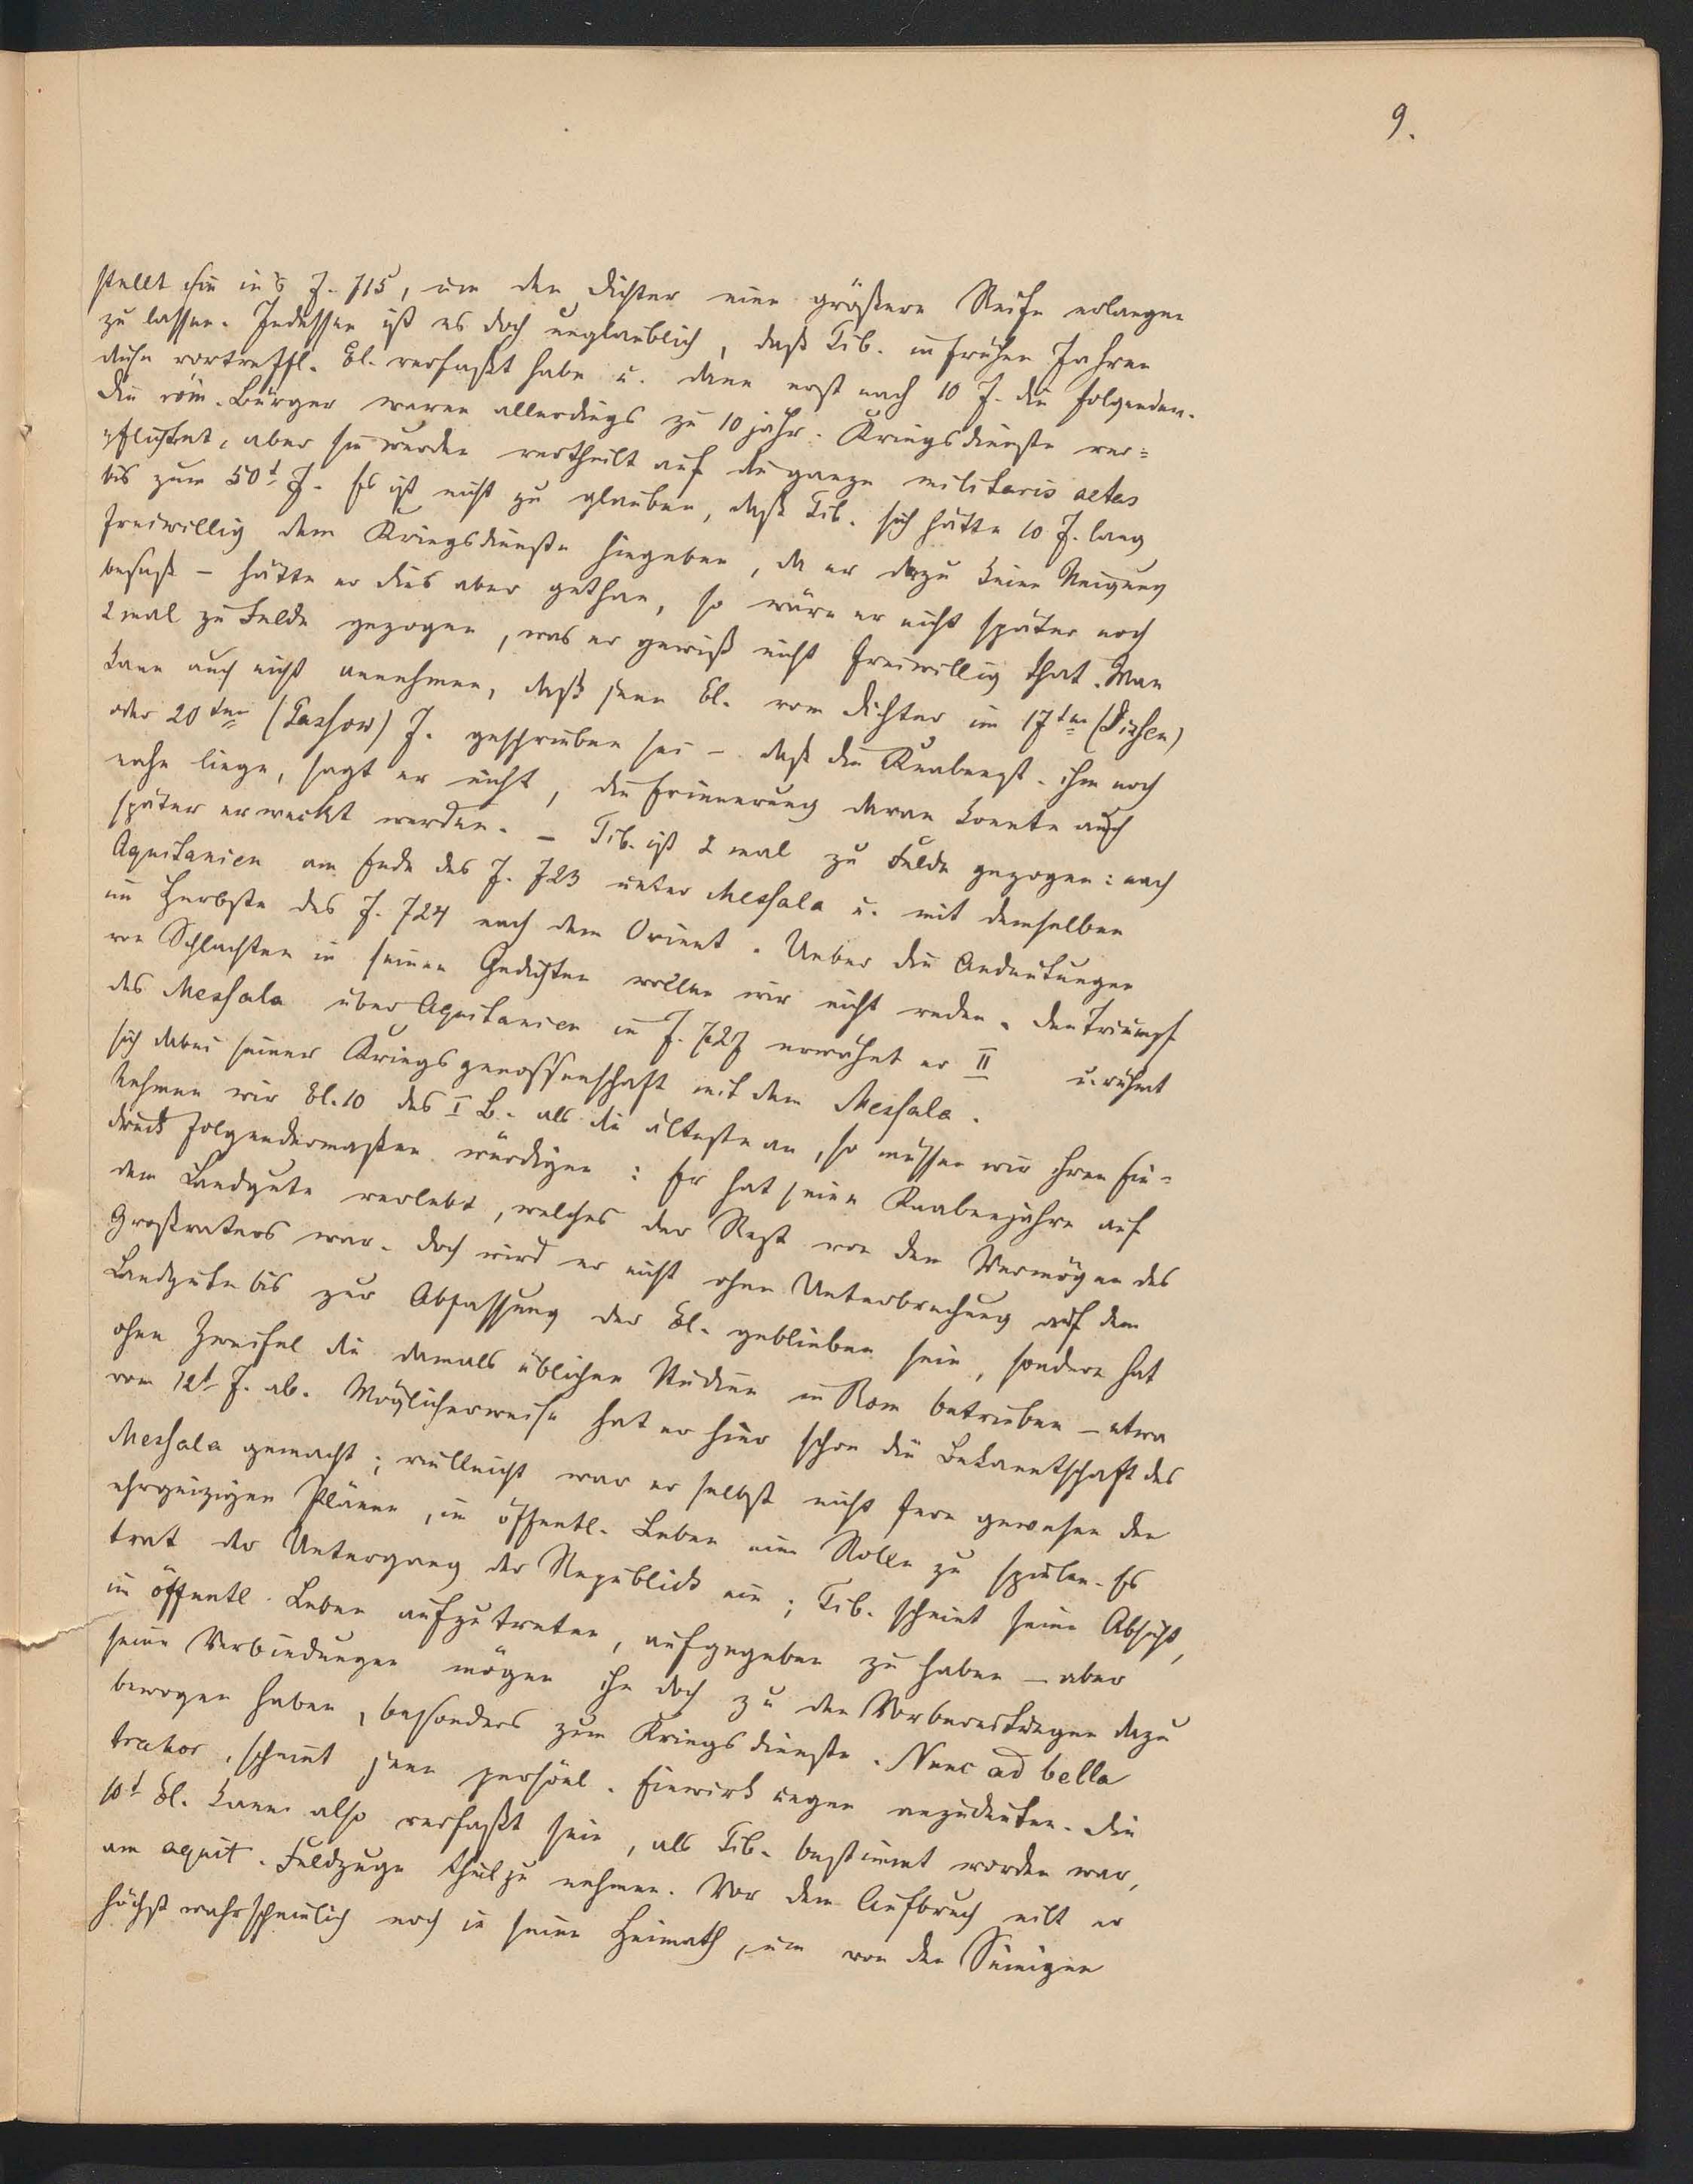 9.
stellt sie in's J. 715, um den Dichter eine größere Reife erlangen
zu lassen. Indessen ist es doch unglaublich, daß Tib. in frühen Jahren
diese vortreffl. El. verfaßt habe u. dann erst nach 10 J. die folgenden.
Die röm. Bürger waren allerdings zu 10 jähr. Kriegsdienste ver=
pflichtet, aber sie wurden vertheilt auf die ganze militaris aetas
bis zum 50t J. Es ist nicht zu glauben, daß Tib. sich hätte 10 J. lang
freiwillig dem Kriegsdienste hingeben, da er dazu keine Neigung
besaß – hätte er dies aber gethan, so wäre er nicht später noch
2 mal zu Felde gezogen, was er gewiß nicht freiwillig that. Man
kann auch nicht annehmen, daß jene El. vom Dichter im 17ten (Dissen)
oder 20ten (Passow) J. geschrieben sei – daß die Knabenzt. ihm noch
nahe liege, sagt er nicht, die Erinnerung daran konnte auch
später erweckt werden. – Tib. ist 2 mal zu Felde gezogen: nach
Aquitanien am Ende des J. 723 unter Messala u. mit demselben
im Herbste des J. 724 nach dem Orient. Ueber die Andeutungen
von Schlachten in seinen Gedichten wollen wir nicht reden. Den Triumpf
des Messala über Aquitanien im J. 727 erwähnt er II u. rühmt
sich dabei seiner Kriegsgenossenschaft mit dem Messala.
Nehmen wir El. 10 des I B. als die älteste an, so müssen wir ihren Ein-
druck folgendermaßen würdigen: Er hat seine Knabenjahre auf
dem Landgute verlebt, welches der Rest von dem Vermögen des
Großvaters war. Doch wird er nicht ohne Unterbrechung auf dem
Landgute bis zur Abfassung der El. geblieben sein, sondern hat
ohne Zweifel die damals üblichen Studien in Rom betrieben – etwa
vom 12t J. ab. Möglicherweise hat er hier schon die Bekanntschaft des
Messala gemacht; vielleicht war er selbst nicht fern gewesen den
ehrgeizigen Plänen, im öffentl. Leben eine Rolle zu spielen. Es
trat der Untergang der Republick ein; Tib. scheint seine Absicht,
im öffentl. Leben aufzutreten, aufgegeben zu haben – aber
seine Verbindungen mögen ihn doch zu den Vorbereitungen dazu
bewogen haben, besonders zum Kriegsdienste. Nunc ad bella
trahor, scheint jene persönl. Einwirkungen anzudeuten. Die
10t El. kann also verfaßt sein, als Tib. bestimmt worden war,
am aquit. Feldzuge theilzunehmen. Vor dem Aufbruch eilt er
höchst wahrscheinlich noch in seine Heimath, um von den Seinigen